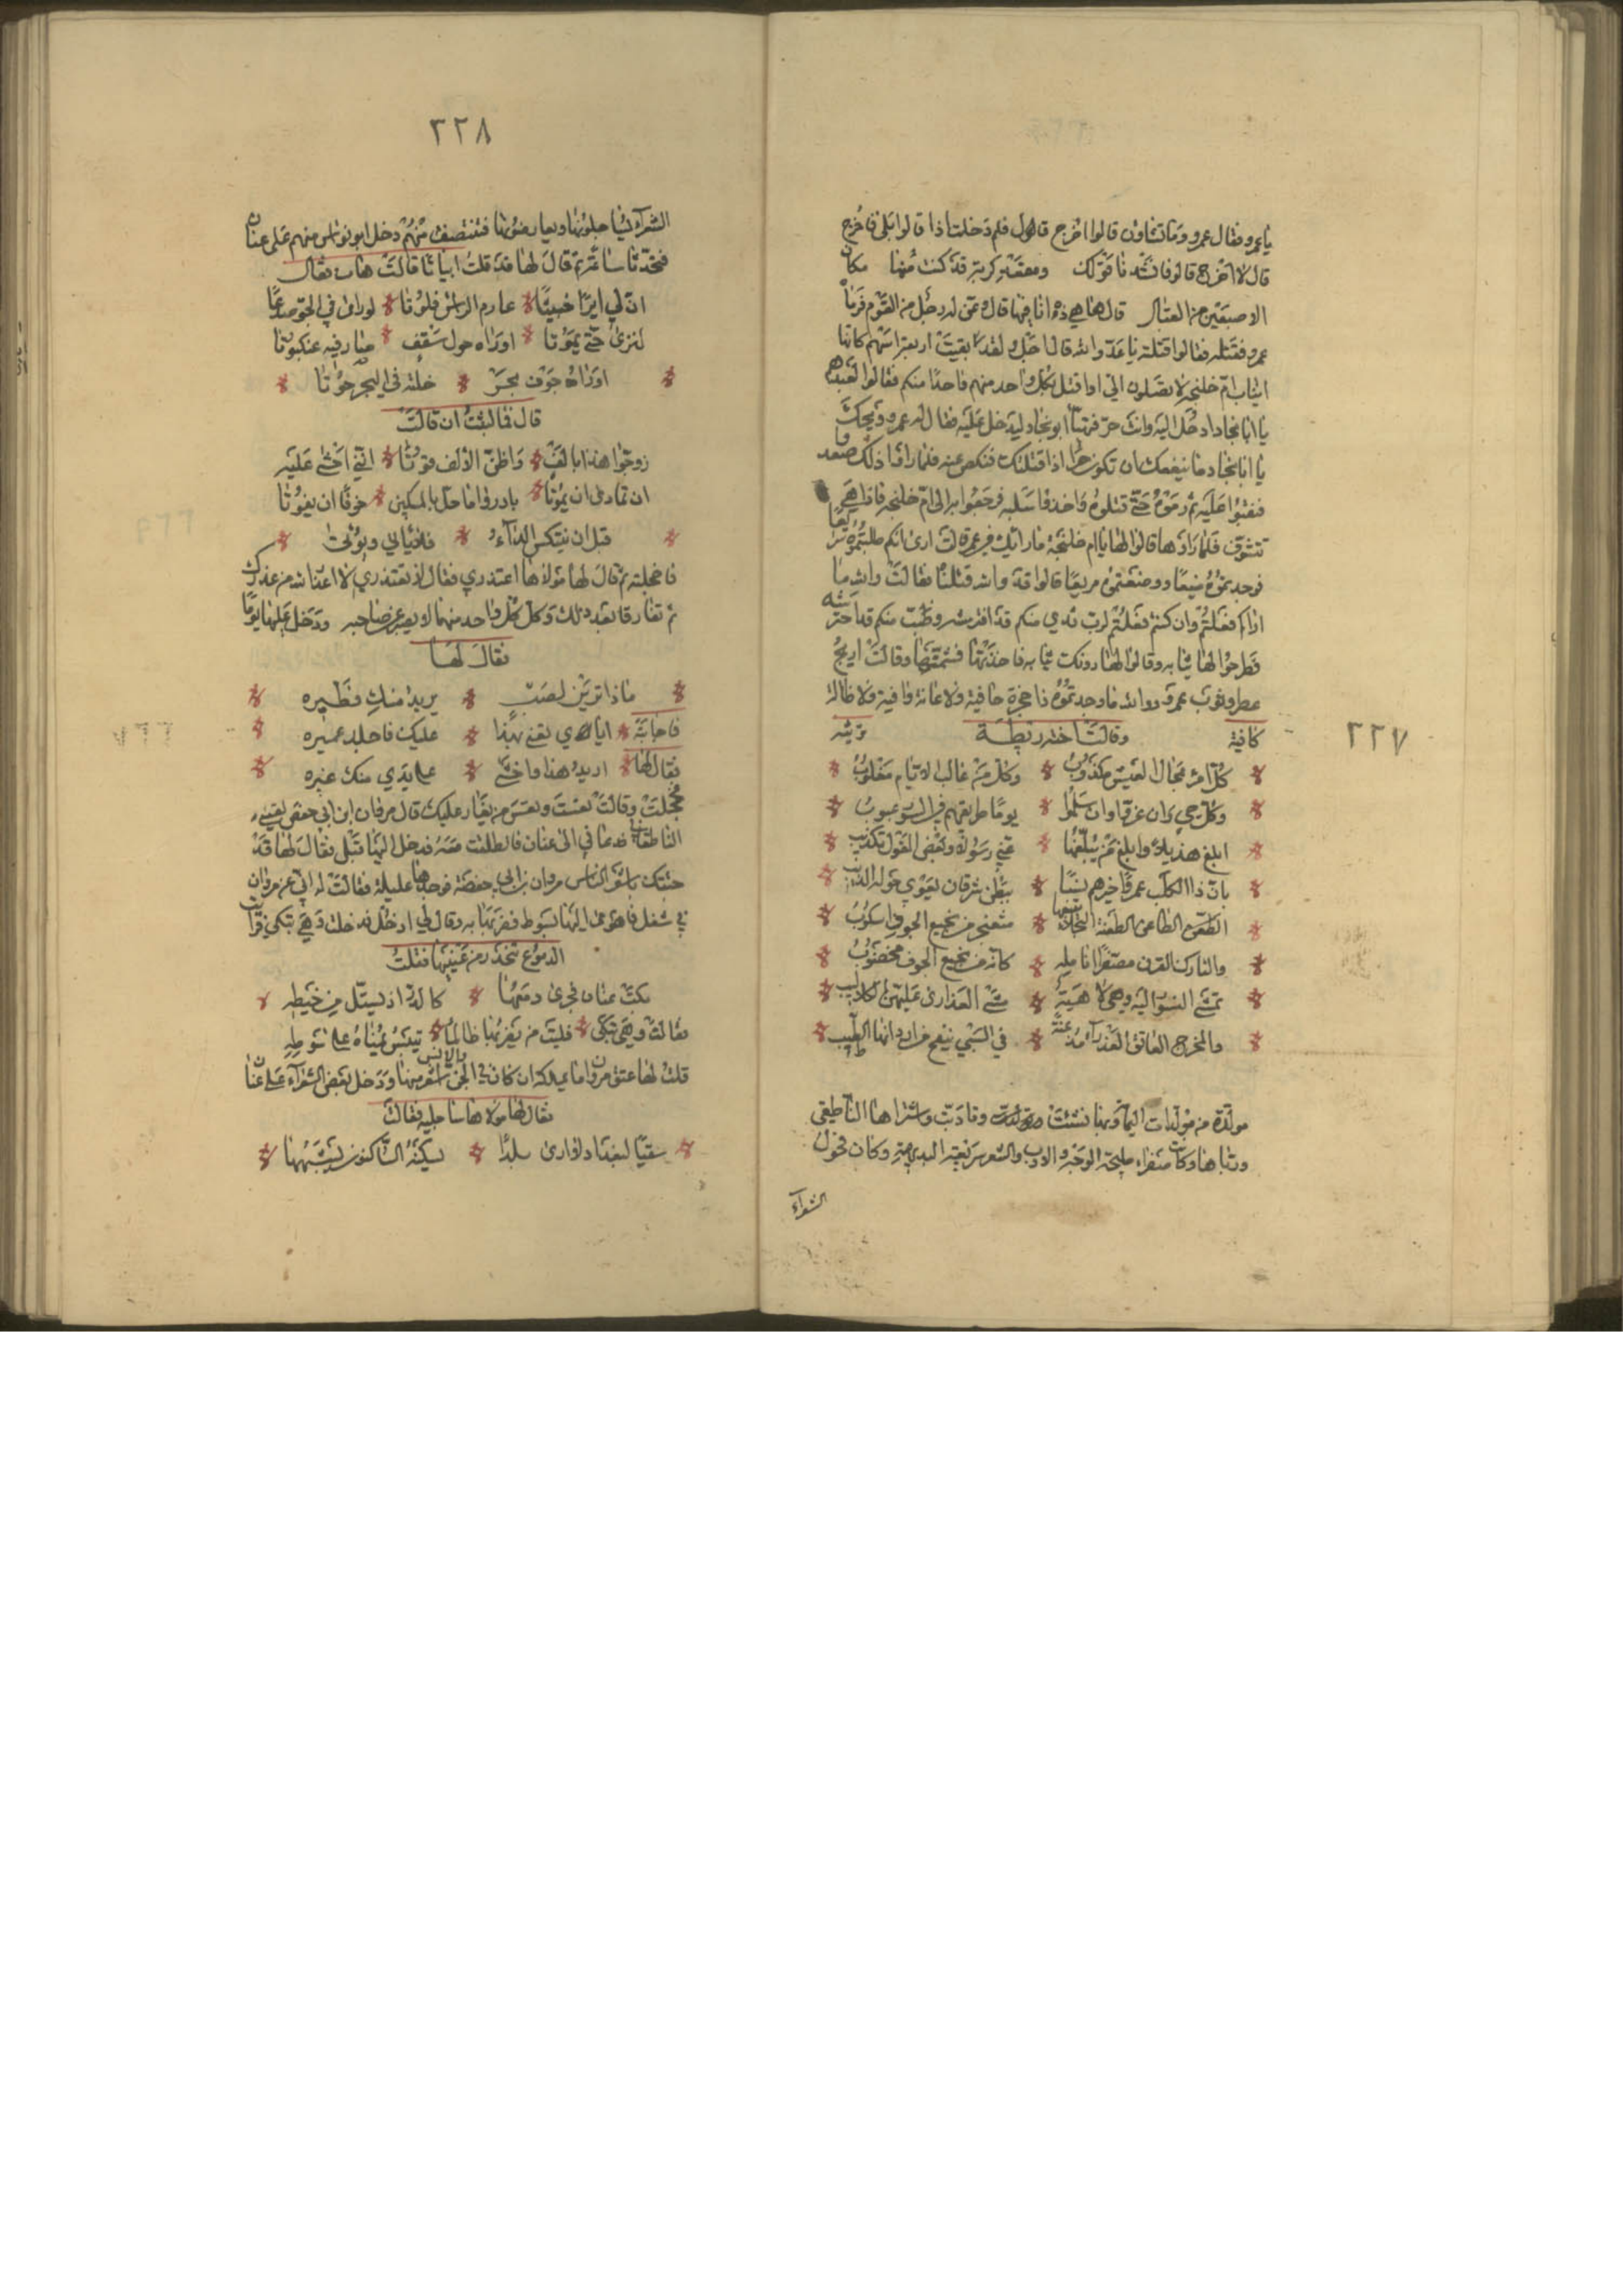 يا عمرو فقال عمرو وما تشاؤن قالوا اخرج قال ولو لم دخلت اذا قالوا بلى فاخرج
قال لا اخرج قالوا فانشدنا قولك ومقعد كربة قد كنت منها مكان
الاصبعين من القبال قال ها هي ذه انا فيها قال وعن له رجل من القوم فرماه
عمرو فقتله فقالوا قتلته يا عدو الله قال اجل ولقد بقيت اربعة اسهم كانها
انياب ام خليجة لا يصلون الي او اقتل بكل واحد منهم واحدا منكم فقالوا لعبدهم
يا ابا نجاد ادخل اليه وانت حر فتهيأ ابو نجاد ليدخل عليه فقال له عمرو ويحك
يا ابا نجاد ما ينفعك ان تكون حرا اذا قتلتك فنكص عنه فلما راوا ذلك صعدوا
فنقبوا عليه ثم رموه حتى قتلوه واخذوا سلبه فرجعوا به الى ام خليجة فاذا هي
تتشوف فلما راوها قالوا لها يا ام خليجة ما رائيك في عمرو قالت ارى انكم طلبتموه سريعا
فوجدتموه منيعا ووضعتموه مريعا قالوا قد والله قتلناه فقالت والله ما
اراكم فعلتم وان كنتم فعلتم لرب ثدي منكم قد افترشه وضب منكم قد احترشه
فطرحوا لها ثيابه وقالوا لها دونك ثيابه فاخذتها فشمتها وقالت اريح
عطر وثوب عمرو اما والله ما وجدتموه ذا حجزة جافية ولا عانة وافية ولا ضالة
كافية وقالت اخته ريطة ترثيه
٢٢٧
كل امرء بمحال العيش مكذوب وكل من غالب الايام مغلوب
وكل حي وان عزوا وان سلموا يوما طريقهم في السوء عبوب
ابلغ هذيلا وابلغ من يبلغها عني رسولا وبعض القول تكذيب
بان ذا الكلب عمرا خيرهم نسبا ببطن شريان يعوي حوله الذيب
الطعن الطاعن الطعنة النجلاء يتبعها مثعنجر من نجيع الجوف اسكوب
والتارك القرن مصفرا انامله كانه من نجيع الجوف مخضوب
تمشي النسور اليه وهي لاهية مشي العذارى عليهن الجلابيب
والمخرج العاتق العذراء مذعنة في السبي ينفح من اردانها الطيب
مولدة من مولدات اليمامة وبها نشئت وتادبت واشتراها الناطفي
ورباها وكانت صفراء مليحة الوجه والادب والشعر سريعة البديهة وكان فحول
الشعراء
٢٢٨
الشعراء يساجلونها ويعارضونها فتنتصف منهم دخل ابو نواس منهم على عنان
فتحدثا ساعة ثم قال لها قد قلت ابياتا قالت هات فقال
ان لي ايرا خبيثا عارم الراس فلوتا لو راى في الجو صدعا
لنزى حتى يموتا او راه حول سقف صار فيه عنكبوتا
او راه جوف بحر خلته في البحر حوتا
قال فما لبثت ان قالت
زوجوا هذا بالف واظن الالف قوتا انني اخشى عليه
ان تمادى ان يموتا بادروا ما حل بالمسكين خوفا ان يفوتا
قبل ان ينتكس الداء فلا يأتي ويؤتى
فاخجلته ثم قال لها مولاها اعتذري فقال لا تعتذري لا اغنى الله من عذرك
ثم تفارقا بعد ذلك وكل واحد منهما لا يصبر عن صاحبه ودخل عليها يوما
فقال لها
ماذا ترين لصب يريد منك قطيره
فاجابته اياي تعني بهذا عليك فاجلد عميره
فقال لها اريد هذا واخشى على يدي منك غيره
فخجلت وقالت تعست وتعس من يغار عليك قال مروان ابن ابي حفص لقيني
الناطفي فدعاني الى عنان فانطلقت معه فدخل اليها قبلي فقال لها قد
جئتك باشعر الناس مروان بن ابي حفصة فوجدها عليلة فقالت له اني عن مروان
في شغل فاهوى اليها بسوط فضربها به وقال لي ادخل فدخلت وهي تبكي فرأيت
الدموع تتحدر من عينيها فقلت
بكت عنان فجرى دمعها كالدر اذ يستل من خيطه
فقالت وهي تبكي فليت من يضربها ظالما تيبس يمناه على سوطه
قلت لها عتق مروان ما يملكه ان كان في الجن والانس اشعر منها ودخل بعض الشعراء على عنان
فقال لها مولاها ساجليه فقالت
سقيا لبغداد لا ارى بلدا يسكنه الساكنون يشبهها